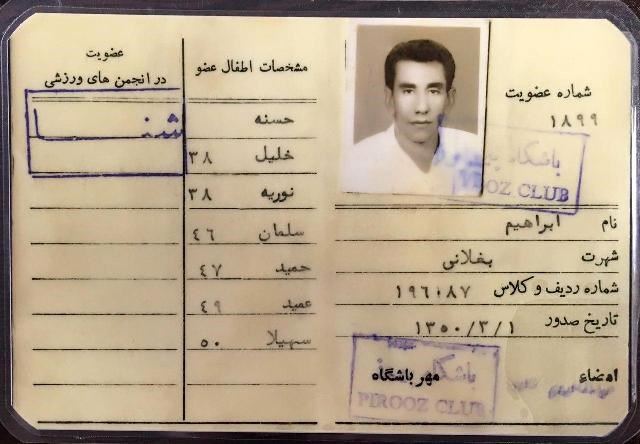 شماره عضویت
۱۸۹۹
باشگاه پیروز
PIROOZ CLUB
نام ابراهیم
شهرت بغلانی
شماره ردیف و کلاس ۱۹۶۰۸۷
تاریخ صدور ۱۳۵۰/۳/۱
امضاء مهر باشگاه
باشگاه
PIROOZ CLUB
مشخصات اطفال عضو
حسنه
خلیل ۳۸
نوریه ۳۸
سلمان ۴۶
حمید ۴۷
عمید ۴۹
سهیلا ۵۰
عضویت
در انجمن های ورزشی
شنا